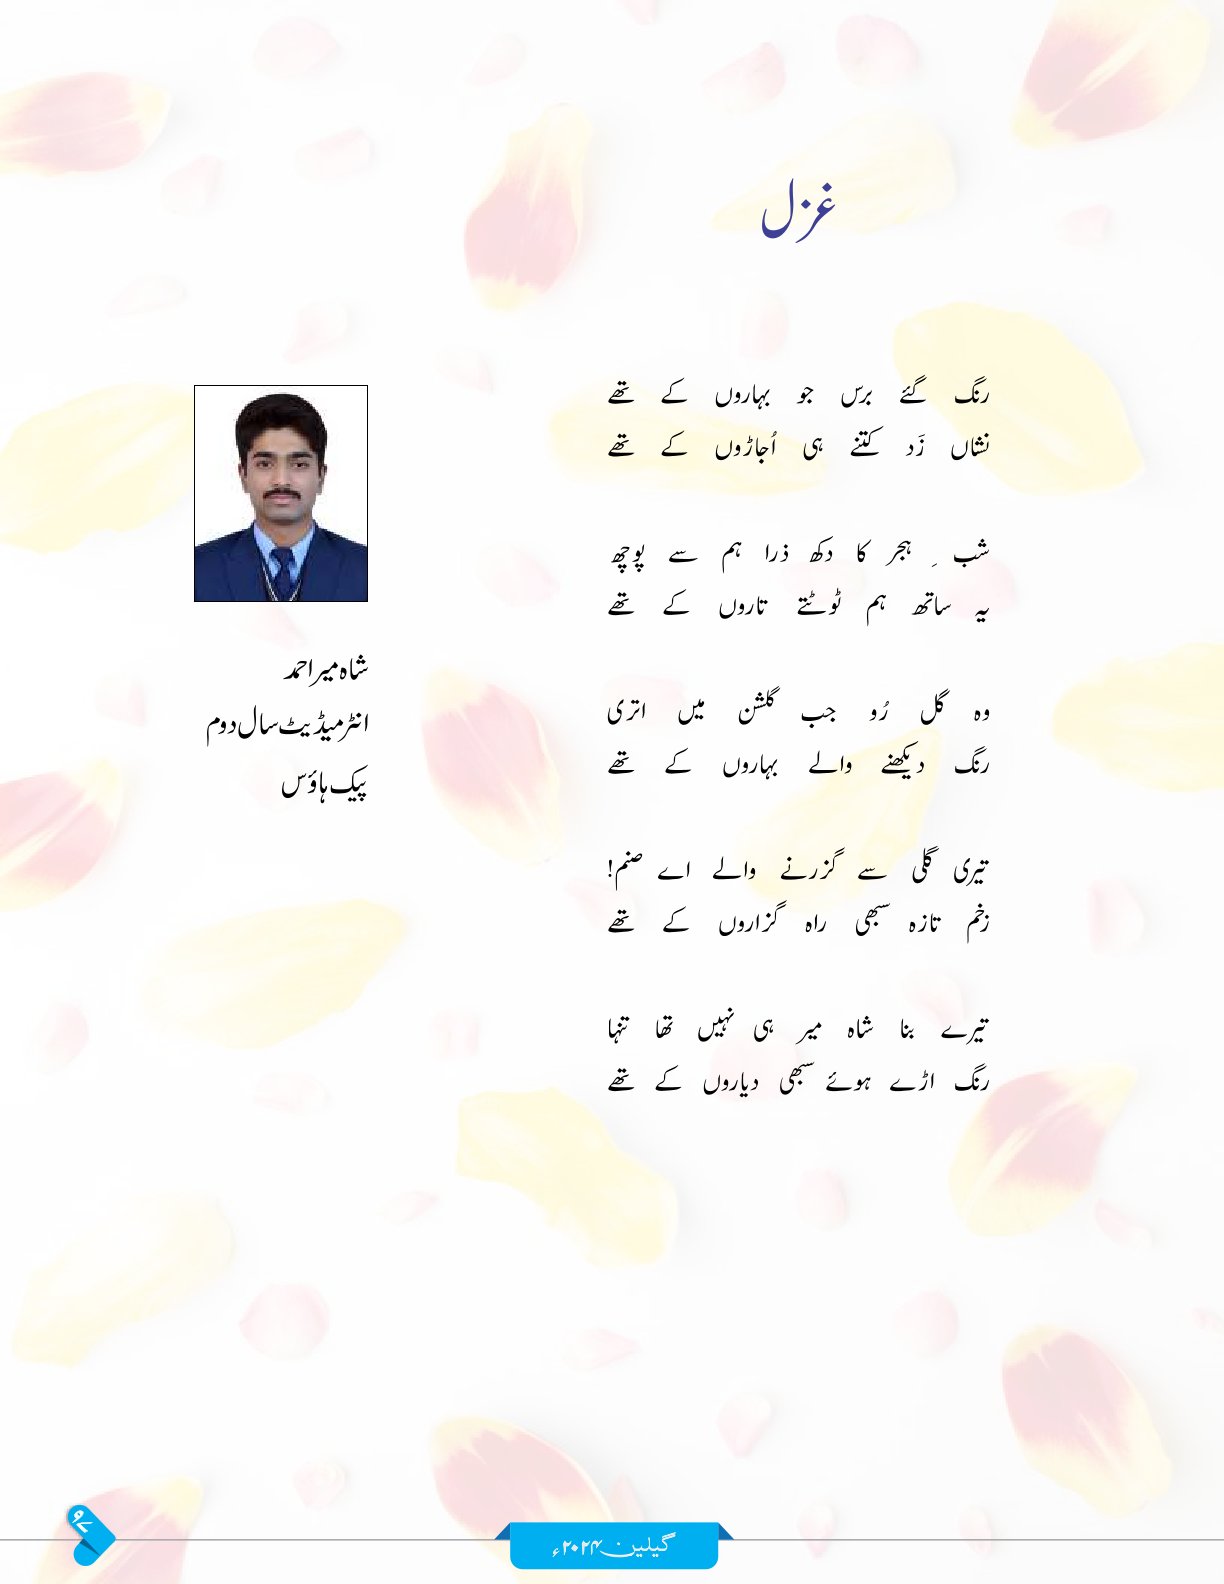 غزل
رنگ گئے برس جو بہاروں کے تھے
نشاں زَد کتنے ہی اُجاڑوں کے تھے
شبِ ہجر کا دکھ ذرا ہم سے پوچھ
یہ ساتھ ہم ٹوٹتے تاروں کے تھے
وہ گل رُو جب گلشن میں اتری
رنگ دیکھنے والے بہاروں کے تھے
تیری گلی سے گزرنے والے اے صنم!
زخم تازہ سبھی راہ گزاروں کے تھے
تیرے بنا شاہ میر ہی نہیں تھا تنہا
رنگ اڑے ہوئے سبھی دیاروں کے تھے
شاہ میر احمد
انٹرمیڈیٹ سال دوم
پیک ہاؤس
۹۷
گیلین ۲۰۲۴ء